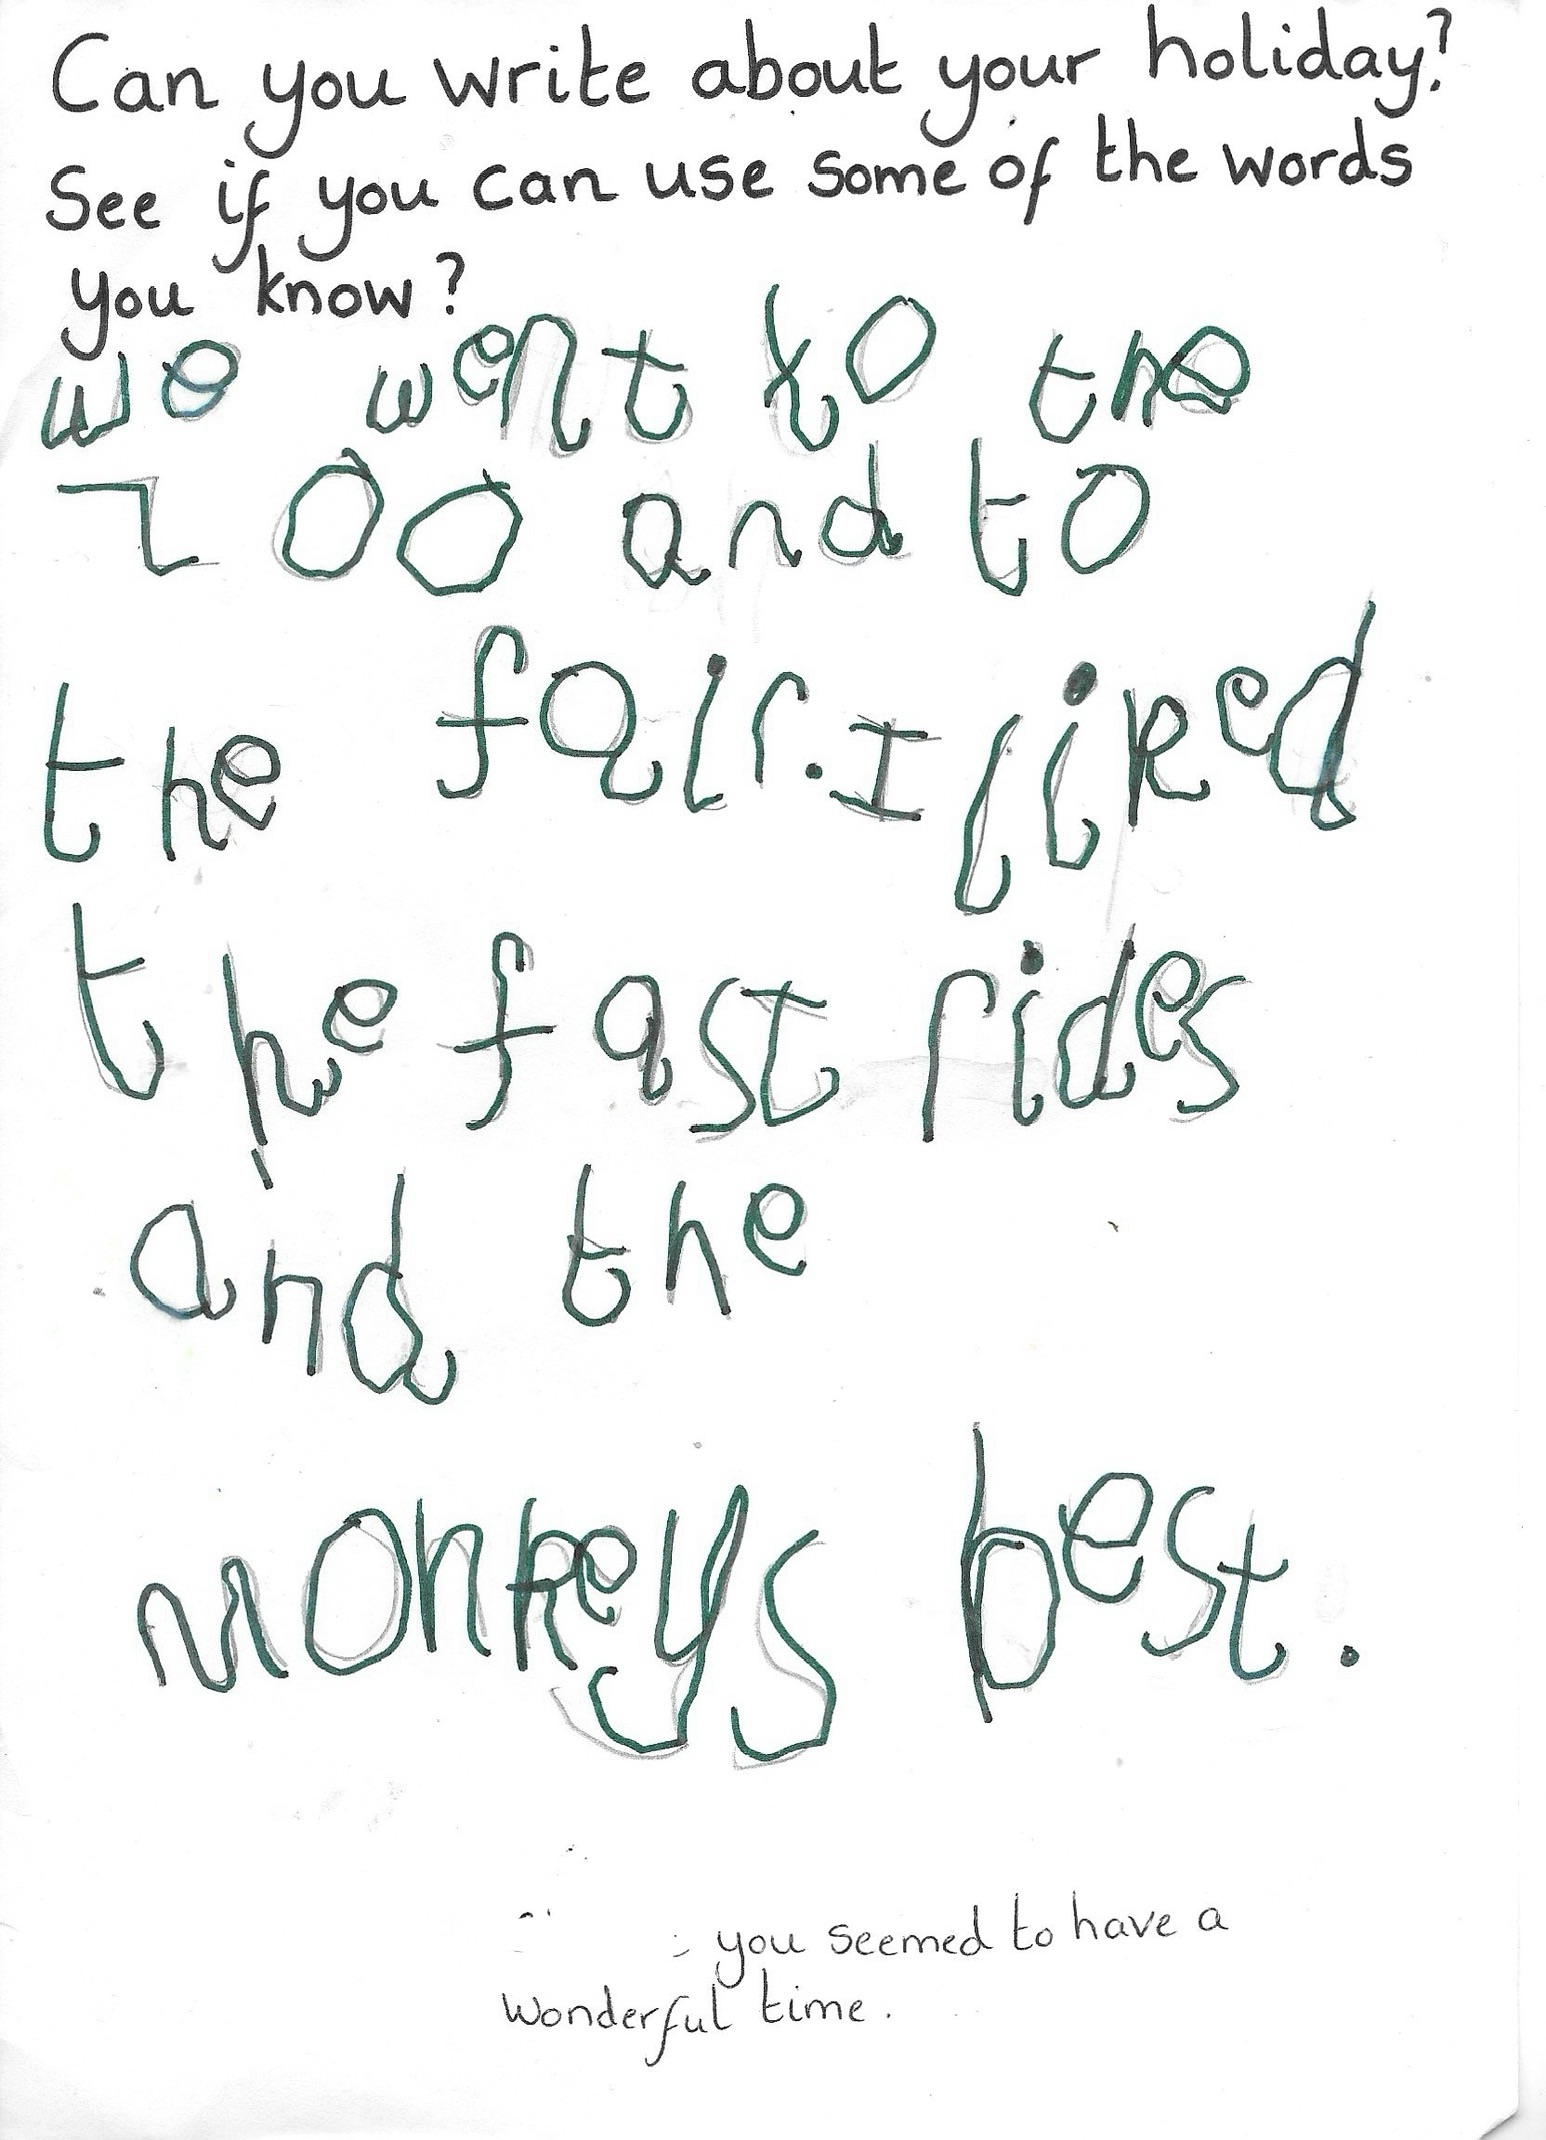 Can you write about your holiday?
See if you can use some of the words
you know?
we went to the
zoo and to
the fair. I liked
the fast rides
and the
monkeys best.
you seemed to have a
wonderful time.